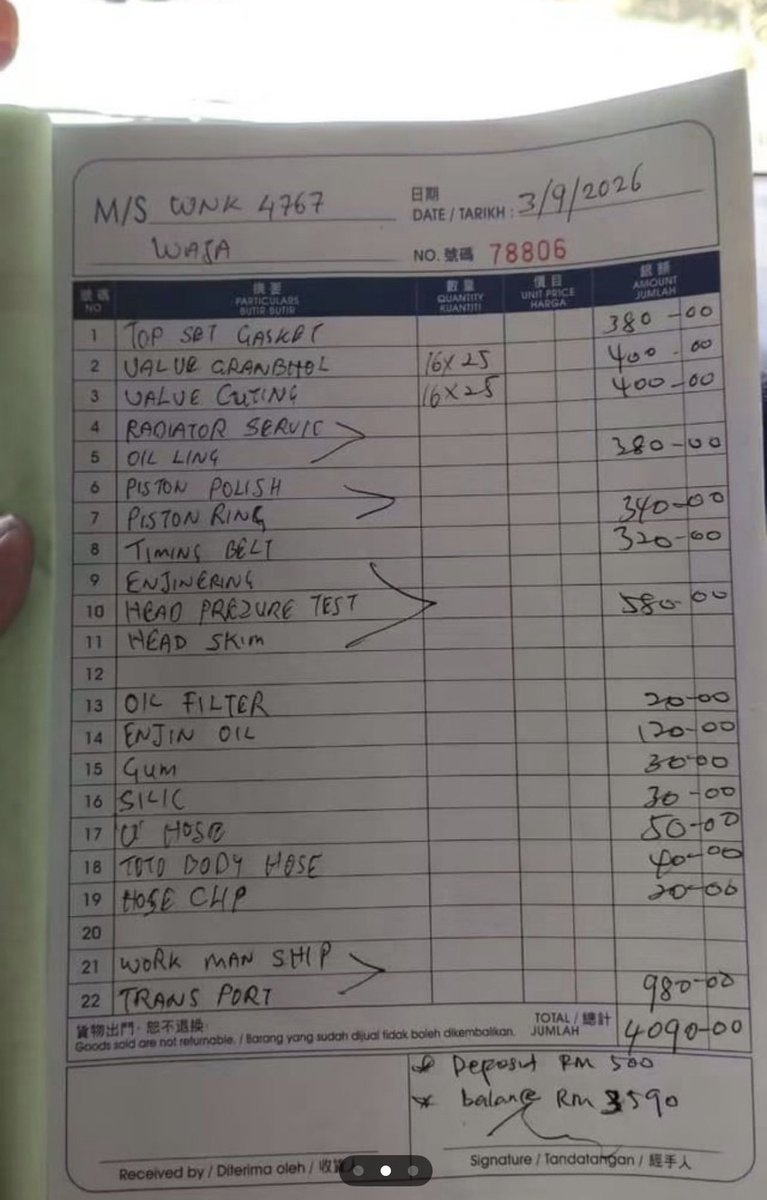 M/S WNK 4767
WAJA
日期
DATE / TARIKH : 3/9/2026
NO. 號碼 78806
號碼 NO 摘要 PARTICULARS BUTIR BUTIR 數量 QUANTITY KUANTITI 價目 UNIT PRICE HARGA 銀額 AMOUNT JUMLAH
1 TOP SET GASKET 380-00
2 VALVE GRANBHOL 16X25 400-00
3 VALVE CUTING 16X25 400-00
4 RADIATOR SERVIC
5 OIL LING 380-00
6 PISTON POLISH
7 PISTON RING 340-00
8 TIMING BELT 320-00
9 ENJINERING
10 HEAD PREZURE TEST 580-00
11 HEAD SKIM
12
13 OIL FILTER 20-00
14 ENJIN OIL 120-00
15 GUM 30-00
16 SILIC 30-00
17 U' HOSE 50-00
18 TOTO BODY HOSE 40-00
19 HOSE CLIP 20-00
20
21 WORK MAN SHIP
22 TRANS PORT 980-00
貨物出門·恕不退換· TOTAL / 總計
Goods sold are not returnable. / Barang yang sudah dijual tidak boleh dikembalikan. JUMLAH 4090-00
* Deposit RM 500
* balance RM 3590
Received by / Diterima oleh / 收貨人
Signature / Tandatangan / 經手人